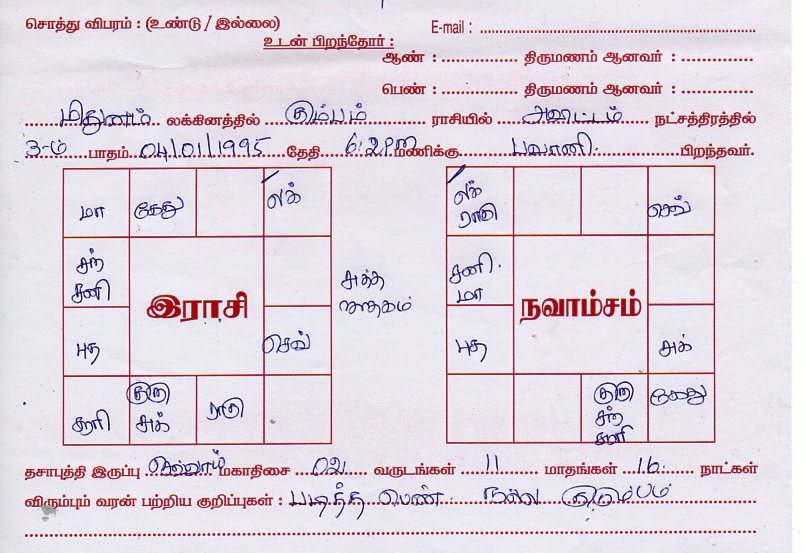 சொத்து விபரம் : (உண்டு / இல்லை) E-mail :
உடன் பிறந்தோர் :
ஆண் : திருமணம் ஆனவர் :
பெண் : திருமணம் ஆனவர் :
மிதுனம் லக்கினத்தில் கும்பம் ராசியில் அவிட்டம் நட்சத்திரத்தில்
3-ம் பாதம் 04/01/1995 தேதி 6:2PM மணிக்கு பவானி. பிறந்தவர்.
மா கேது லக்
சந் சனி
இராசி
புத செவ்
சூரி குரு சுக் ராகு
சுத்த ஜாதகம்
லக் ராகு செவ்
சனி. மா
நவாம்சம்
புத சுக்
குரு சந் சூரி கேது
தசாபுத்தி இருப்பு செவ்வாய் மகாதிசை 02 வருடங்கள் 11 மாதங்கள் 16 நாட்கள்
விரும்பும் வரன் பற்றிய குறிப்புகள் : படித்த பெண். நல்ல குடும்பம்